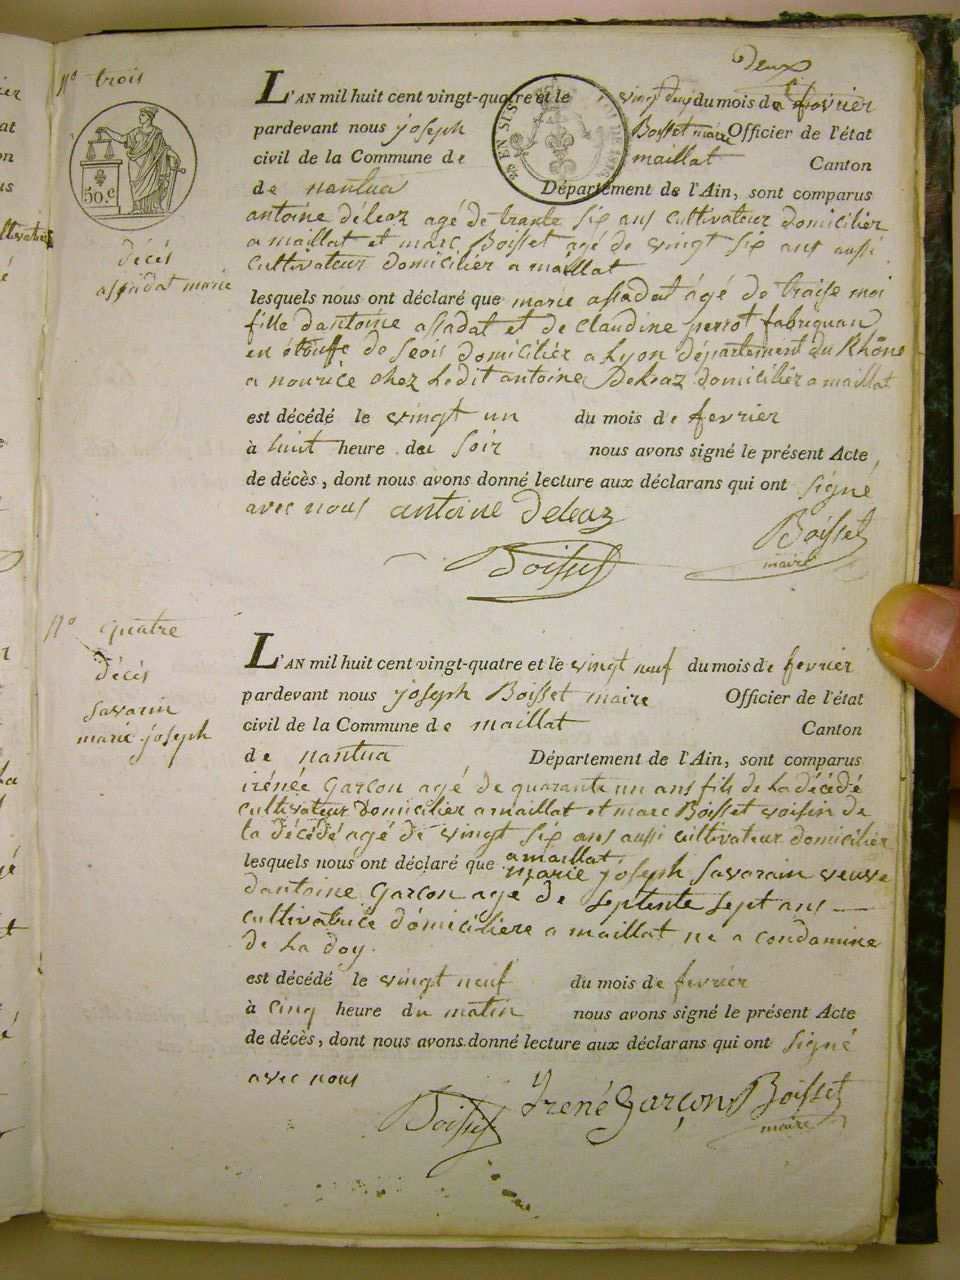 deux
N° trois
50. c
décés
assadat marie
L'AN mil huit cent vingt-quatre et le vingt deux du mois de février
pardevant nous joseph Boisset maire Officier de l'état
civil de la Commune de maillat Canton
de nantua Département de l'Ain, sont comparus
antoine déléaz agé de trante six ans cultivateur domicilier
a maillat et marc Boisset agé de vingt six ans aussi
cultivateur domicilier a maillat
lesquels nous ont déclaré que marie assadat agé de traise moi
fille dantoine assadat et de claudine perrot fabriquan
en étouffe de seois domicilier a Lyon département du Rhône
a nourice chez ledit antoine Deleaz domicilier a maillat
est décédé le vingt un du mois de fevrier
à huit heure du soir nous avons signé le présent Acte
de décès, dont nous avons donné lecture aux déclarans qui ont signé
avec nous antoine deleaz
Boisset Boisset
maire
N° quatre
décés
savarin
marie joseph
L'AN mil huit cent vingt-quatre et le vingt neuf du mois de fevrier
pardevant nous joseph Boisset maire Officier de l'état
civil de la Commune de maillat Canton
de nantua Département de l'Ain, sont comparus
irénée Garçon agé de quarante un ans fils de la décédé
cultivateur domicilier a maillat et marc Boisset voisin de
la décédé agé de vingt six ans aussi cultivateur domicilier
a maillat
lesquels nous ont déclaré que marie joseph savarain veuve
dantoine Garçon agé de septente sept ans
cultivatrice domiciliere a maillat né a condamine
de la doy.
est décédé le vingt neuf du mois de fevrier
à cinq heure du matin nous avons signé le présent Acte
de décès, dont nous avons donné lecture aux déclarans qui ont signé
avec nous
Boisset Irené Garçon Boisset
maire